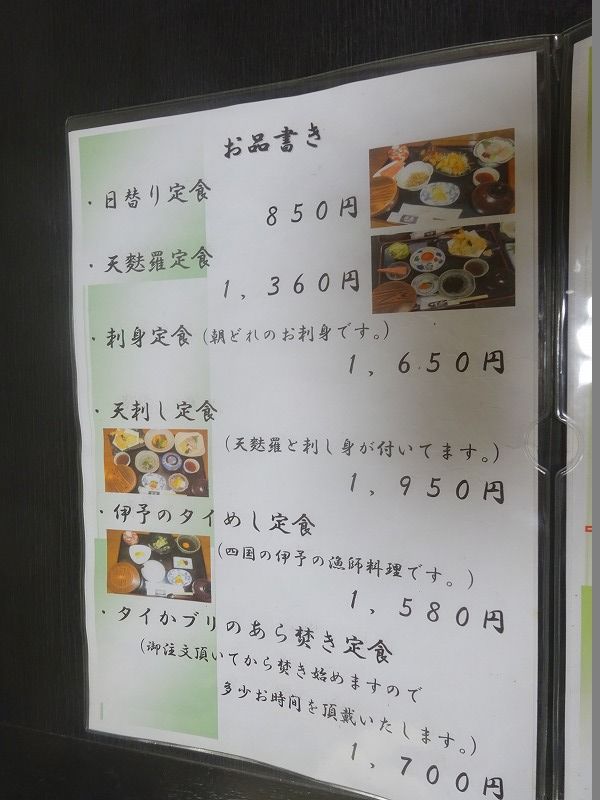 お品書き
・日替り定食
850円
・天麩羅定食
1,360円
・刺身定食(朝どれのお刺身です。)
1,650円
・天刺し定食
(天麩羅と刺し身が付いてます。)
1,950円
・伊予のタイめし定食
(四国の伊予の漁師料理です。)
1,580円
・タイかブリのあら焚き定食
(御注文頂いてから焚き始めますので
多少お時間を頂戴いたします。)
1,700円